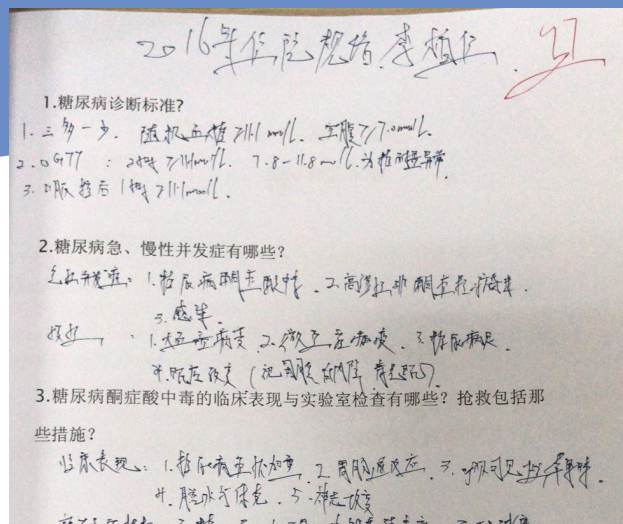 2016年住院规培 李植仁
1.糖尿病诊断标准?
1. 三多一少. 随机血糖≥11.1mmol/L. 空腹≥7.0mmol/L.
2. OGTT : 2h ≥11.1mmol/L. 7.8-11.8 为糖耐量异常
3. 口服糖后1h ≥11.1mmol/L.
2.糖尿病急、慢性并发症有哪些?
急性并发症: 1.糖尿病酮症酸中毒. 2.高渗性非酮症 昏迷.
3.感染.
慢性 : 1.大血管病变. 2.微血管病变. 3.糖尿病足.
4.眼底改变 (视网膜 白内障 青光眼).
3.糖尿病酮症酸中毒的临床表现与实验室检查有哪些? 抢救包括那
些措施?
临床表现: 1.糖尿病症状加重. 2.胃肠道反应. 3.呼吸可见烂苹果味.
4.脱水与休克. 5.神志改变